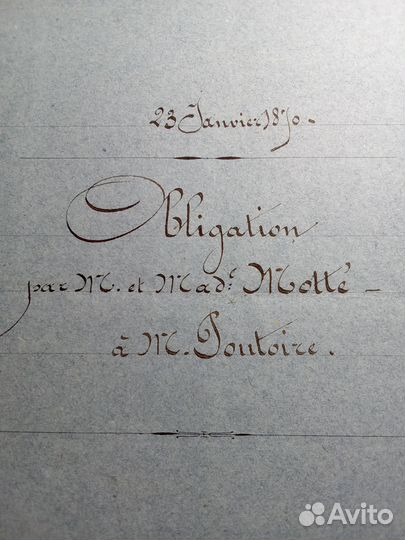 23 Janvier 1870.
Obligation
par M. et Mad.e Motte
à M. Poutoire.
Avito